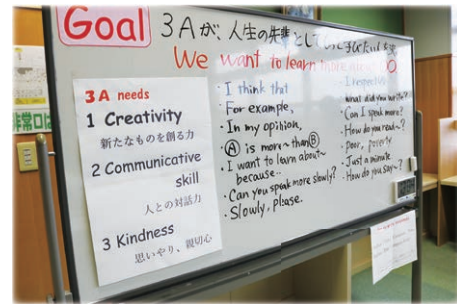 Goal
3Aが、人生の先輩として
We want to learn
3A needs
1 Creativity
新たなものを創る力
2 Communicative
skill
人との対話力
3 Kindness
思いやり、親切心
・I think that
For example,
・In my opinion,
Ⓐ is more~thanⒷ
・I want to learn about~
because...
・Can you speak more slowly?
・Slowly, Please.
・I respect
what did you
・Can I speak more?
・How do you read~?
・Poor, poverty
・Just a minute.
・How do you say~?
非常口